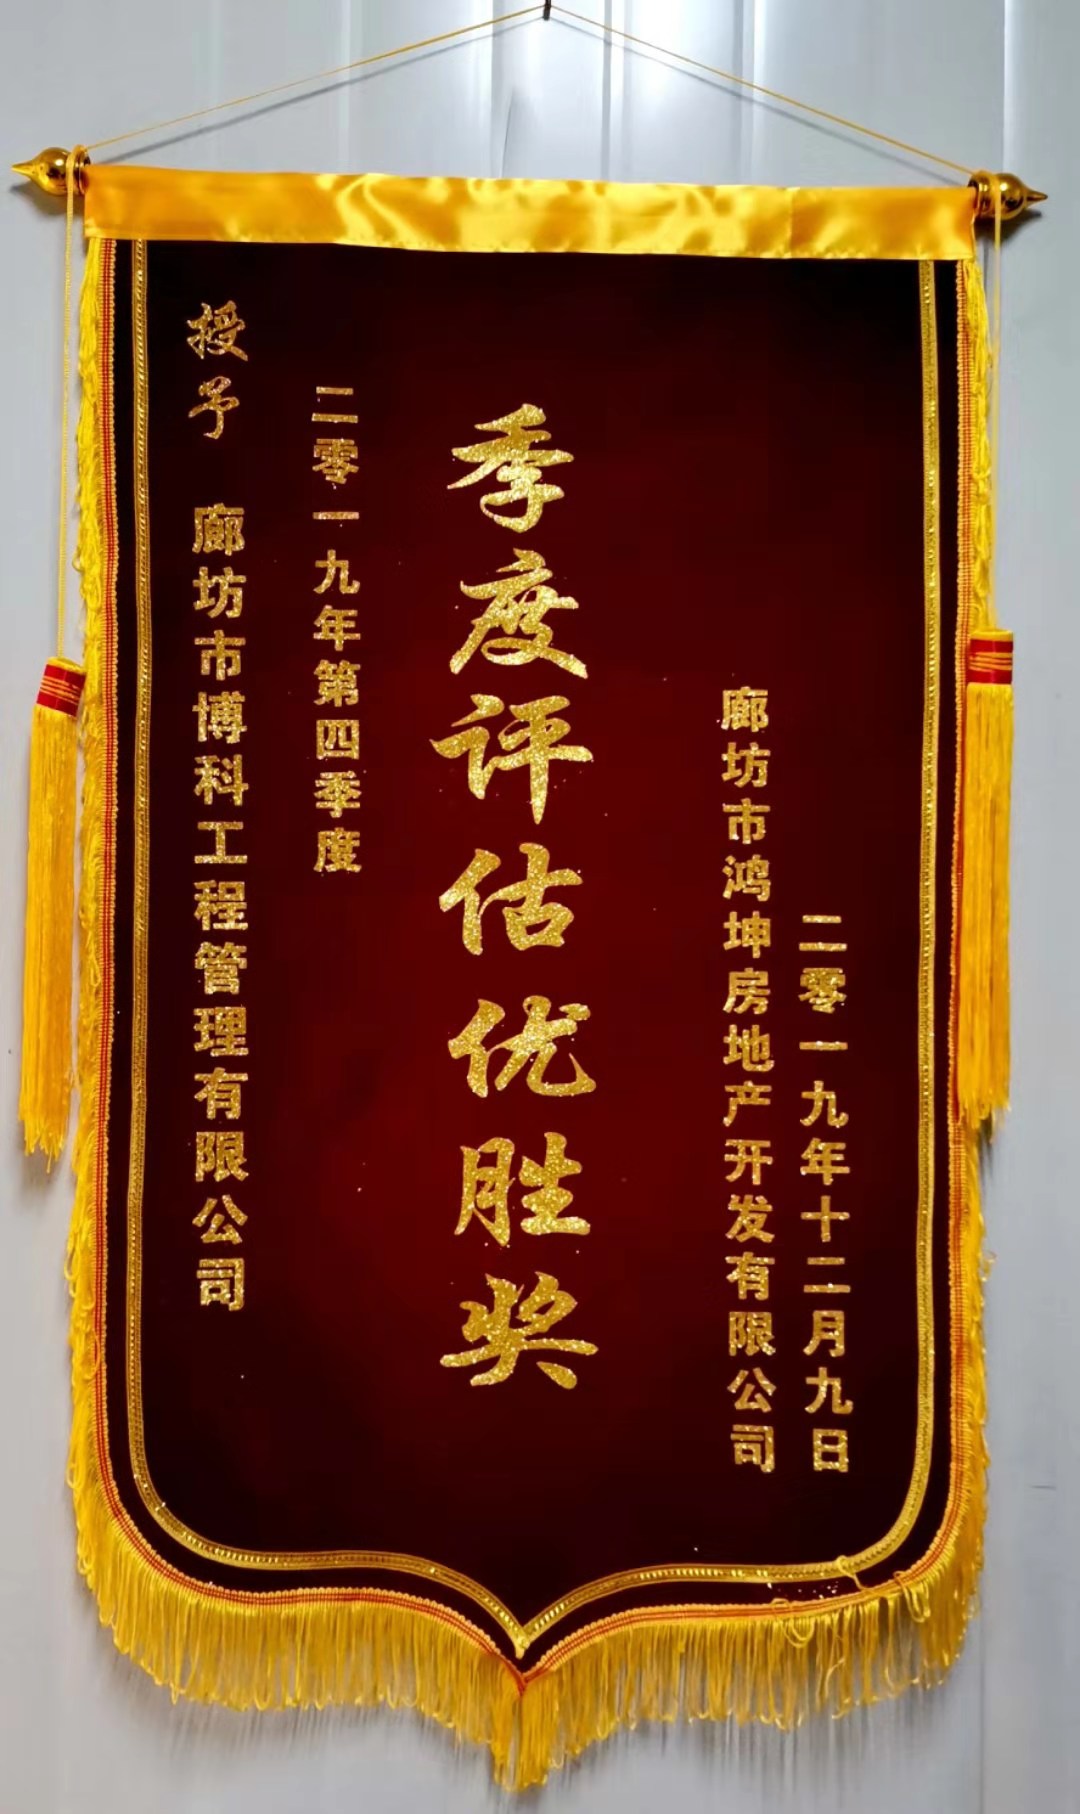 授予 廊坊市博科工程管理有限公司
二零一九年第四季度
季度评估优胜奖
廊坊市鸿坤房地产开发有限公司
二零一九年十二月九日